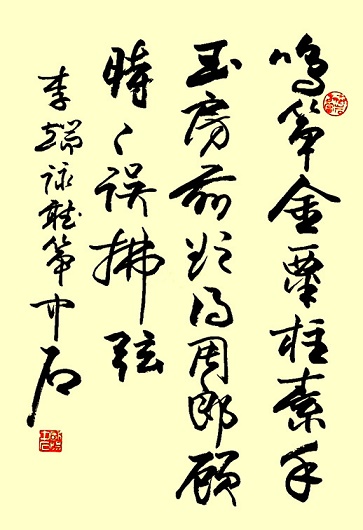 鸣筝金粟柱素手
玉房前欲得周郎顾
时〻误拂弦
李端咏听筝中石